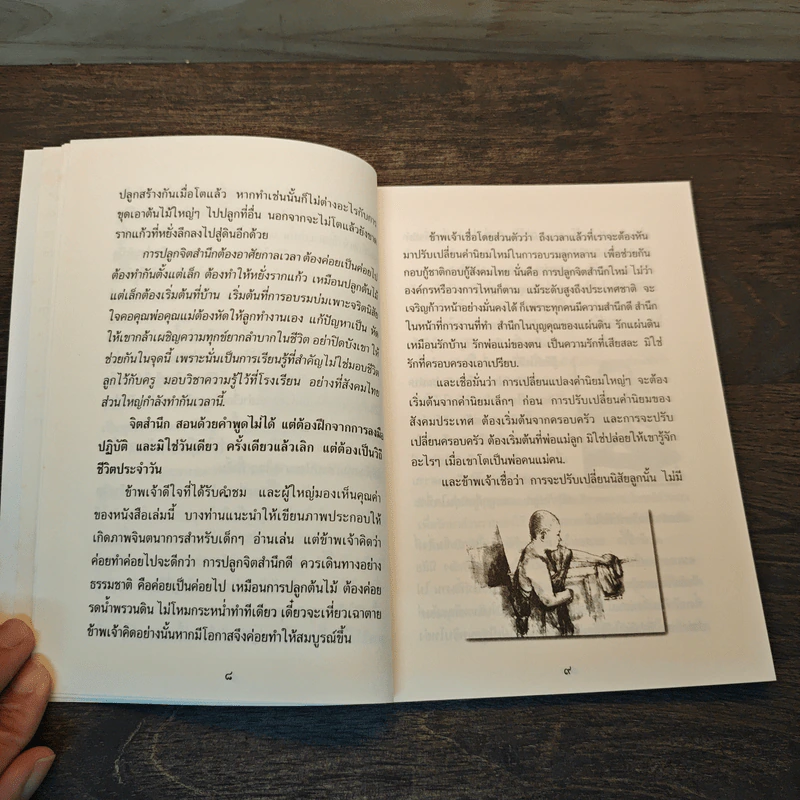 ปลูกสร้างกันเมื่อโตแล้ว หากทำเช่นนั้นก็ไม่ต่างอะไรกับการ
ขุดเอาต้นไม้ใหญ่ๆ ไปปลูกที่อื่น นอกจากจะไม่โตแล้วยังขาด
รากแก้วที่หยั่งลึกลงไปสู่ดินอีกด้วย
การปลูกจิตสำนึกต้องอาศัยกาลเวลา ต้องค่อยเป็นค่อยไป
ต้องทำกันตั้งแต่เล็ก ต้องทำให้หยั่งรากแก้ว เหมือนปลูกต้นไม้
แต่เล็กต้องเริ่มต้นที่บ้าน เริ่มต้นที่การอบรมบ่มเพาะจริตนิสัย
ใจคอคุณพ่อคุณแม่ต้องหัดให้ลูกทำงานเอง แก้ปัญหาเป็น หัด
ให้เขากล้าเผชิญความทุกข์ยากลำบากในชีวิต อย่าปิดบังเขา ให้
ช่วยกันในจุดนี้ เพราะนั่นเป็นการเรียนรู้ที่สำคัญไม่ใช่มอบชีวิต
ลูกไว้กับครู มอบวิชาความรู้ไว้ที่โรงเรียน อย่างที่สังคมไทย
ส่วนใหญ่กำลังทำกันเวลานี้.
จิตสำนึก สอนด้วยคำพูดไม่ได้ แต่ต้องฝึกจากการลงมือ
ปฏิบัติ และมิใช่วันเดียว ครั้งเดียวแล้วเลิก แต่ต้องเป็นวิถี
ชีวิตประจำวัน
ข้าพเจ้าดีใจที่ได้รับคำชม และผู้ใหญ่มองเห็นคุณค่า
ของหนังสือเล่มนี้ บางท่านแนะนำให้เขียนภาพประกอบให้
เกิดภาพจินตนาการสำหรับเด็กๆ อ่านเล่น แต่ข้าพเจ้าคิดว่า
ค่อยทำค่อยไปจะดีกว่า การปลูกจิตสำนึกดี ควรเดินทางอย่าง
ธรรมชาติ คือค่อยเป็นค่อยไป เหมือนการปลูกต้นไม้ ต้องค่อย
รดน้ำพรวนดิน ไม่โหมกระหน่ำทำทีเดียว เดี๋ยวจะเหี่ยวเฉาตาย
ข้าพเจ้าคิดอย่างนั้นหากมีโอกาสจึงค่อยทำให้สมบูรณ์ขึ้น
๘
ข้าพเจ้าเชื่อโดยส่วนตัวว่า ถึงเวลาแล้วที่เราจะต้องหัน
มาปรับเปลี่ยนค่านิยมใหม่ในการอบรมลูกหลาน เพื่อช่วยกัน
กอบกู้ชาติกอบกู้สังคมไทย นั่นคือ การปลูกจิตสำนึกใหม่ ไม่ว่า
องค์กรหรือวงการไหนก็ตาม แม้ระดับสูงถึงประเทศชาติ จะ
เจริญก้าวหน้าอย่างมั่นคงได้ ก็เพราะทุกคนมีความสำนึกดี สำนึก
ในหน้าที่การงานที่ทำ สำนึกในบุญคุณของแผ่นดิน รักแผ่นดิน
เหมือนรักบ้าน รักพ่อแม่ของตน เป็นความรักที่เสียสละ มิใช่
รักที่ครอบครองเอาเปรียบ.
และเชื่อมั่นว่า การเปลี่ยนแปลงค่านิยมใหญ่ๆ จะต้อง
เริ่มต้นจากค่านิยมเล็กๆ ก่อน การปรับเปลี่ยนค่านิยมของ
สังคมประเทศ ต้องเริ่มต้นจากครอบครัว และการจะปรับ
เปลี่ยนครอบครัว ต้องเริ่มต้นที่พ่อแม่ลูก มิใช่ปล่อยให้เขารู้จัก
อะไรๆ เมื่อเขาโตเป็นพ่อคนแม่คน.
และข้าพเจ้าเชื่อว่า การจะปรับเปลี่ยนนิสัยลูกนั้น ไม่มี
๙